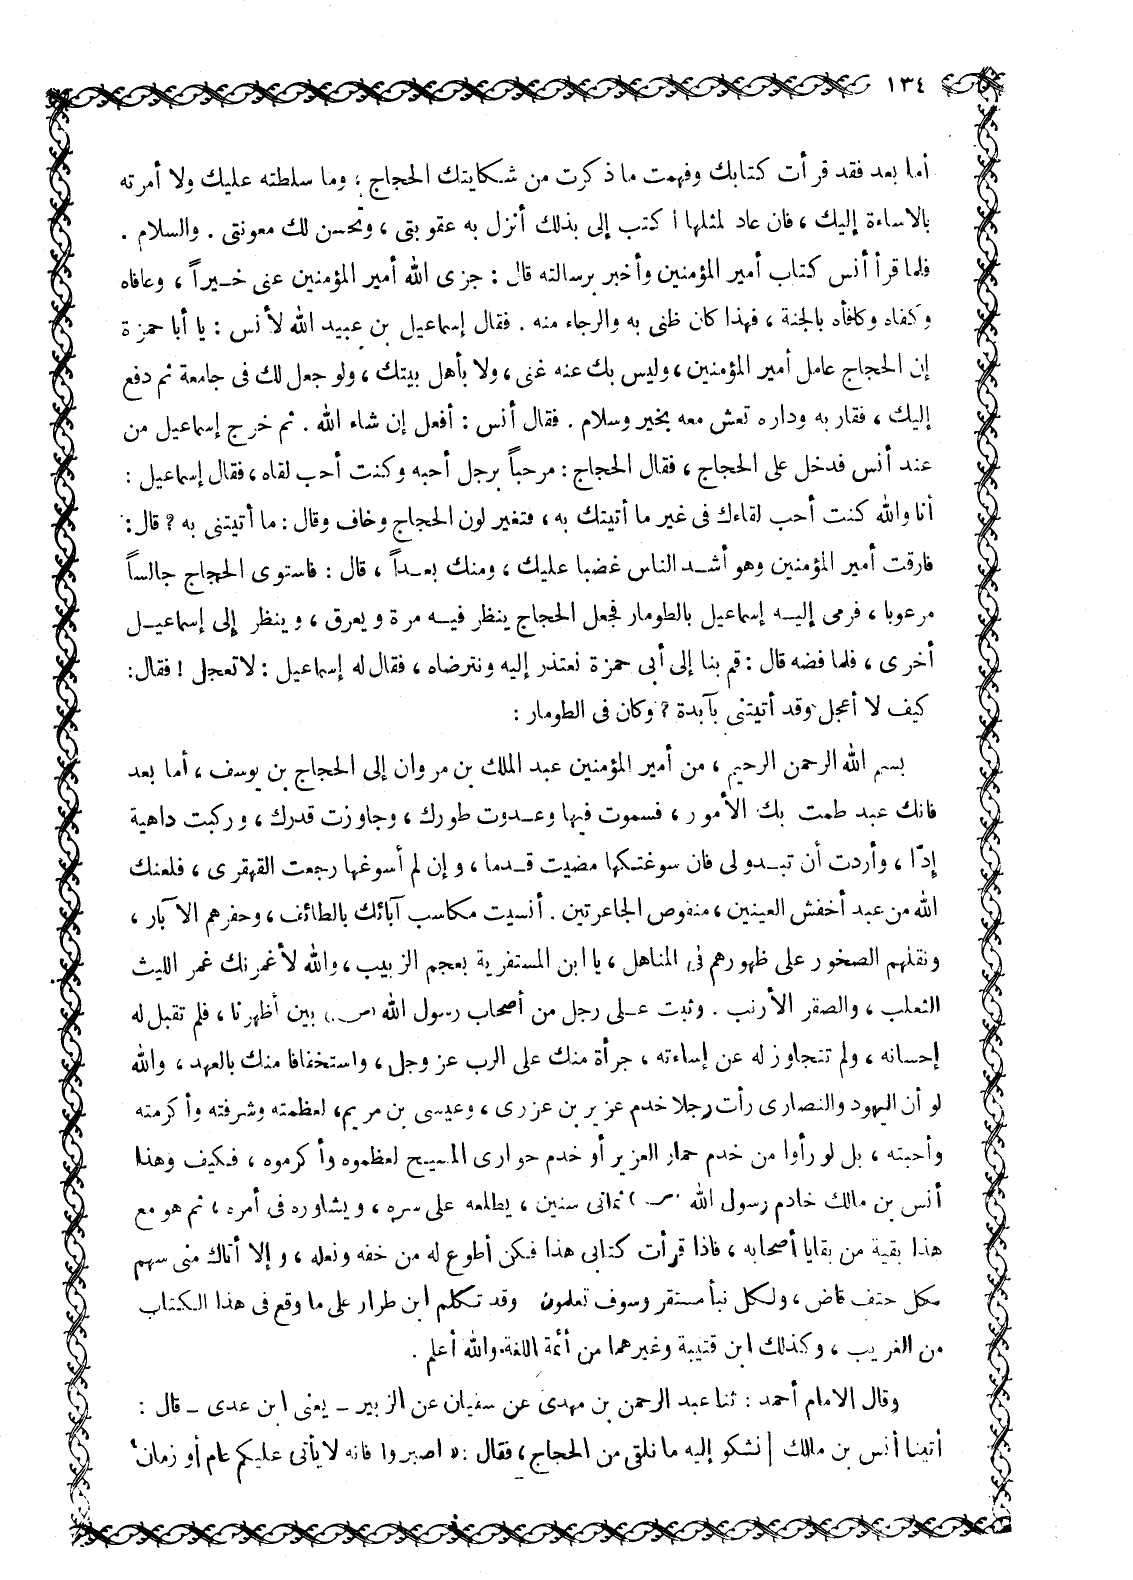 ١٣٤
أما بعد فقد قرأت كتابك وفهمت ما ذكرت من شكايتك الحجاج ، وما سلطته عليك ولا أمرته
بالاساءة إليك ، فان عاد لمثلها اكتب إلى بذلك أنزل به عقوبتى ، وتحسن لك معونتى . والسلام .
فلما قرأ أنس كتاب أمير المؤمنين وأخبر برسالته قال : جزى الله أمير المؤمنين عنى خيراً ، وعافاه
وكفاه وكافأه بالجنة ، فهذا كان ظنى به والرجاء منه . فقال إسماعيل بن عبيد الله لأنس : يا أبا حمزة
إن الحجاج عامل أمير المؤمنين ، وليس بك عنه غنى ، ولا بأهل بيتك ، ولو جعل لك فى جامعة ثم دفع
إليك ، فقاربه وداره تعش معه بخير وسلام . فقال أنس : أفعل إن شاء الله . ثم خرج إسماعيل من
عند أنس فدخل على الحجاج ، فقال الحجاج : مرحباً برجل أحبه وكنت أحب لقاه ، فقال إسماعيل :
أنا والله كنت أحب لقاءك فى غير ما أتيتك به ، فتغير لون الحجاج وخاف وقال : ما أتيتنى به ؟ قال :
فارقت أمير المؤمنين وهو أشد الناس غضبا عليك ، ومنك بعداً ، قال : فاستوى الحجاج جالساً
مرعوبا ، فرمى إليه إسماعيل بالطومار فجعل الحجاج ينظر فيه مرة ويعرق ، وينظر إلى إسماعيل
أخرى ، فلما فضه قال : قم بنا إلى أبى حمزة نعتذر إليه ونترضاه ، فقال له إسماعيل : لا تعجل ! فقال :
كيف لا أعجل وقد أتيتنى بآبدة ؟ وكان فى الطومار :
بسم الله الرحمن الرحيم ، من أمير المؤمنين عبد الملك بن مروان إلى الحجاج بن يوسف ، أما بعد
فانك عبد طمت بك الأمور ، فسموت فيها وعدوت طورك ، وجاوزت قدرك ، وركبت داهية
إدّا ، وأردت أن تبدو لى فان سوغتكها مضيت قدما ، وإن لم أسوغها رجعت القهقرى ، فلعنك
الله من عبد أخفش العينين ، منقوص الجاعرتين . أنسيت مكاسب آبائك بالطائف ، وحفرهم الآبار ،
ونقلهم الصخور على ظهورهم فى المناهل ، يا ابن المستفرية بعجم الزبيب ، والله لأغمرنك غمر الليث
الثعلب ، والصقر الأرنب . وثبت على رجل من أصحاب رسول الله (ص) بين أظهرنا ، فلم تقبل له
إحسانه ، ولم تتجاوز له عن إساءته ، جرأة منك على الرب عز وجل ، واستخفافا منك بالعهد ، والله
لو أن اليهود والنصارى رأت رجلا خدم عزير بن عزرى ، وعيسى بن مريم ، لعظمته وشرفته وأكرمته
وأحبته ، بل لو رأوا من خدم حمار العزير أو خدم حوارى المسيح لعظموه وأكرموه ، فكيف وهذا
أنس بن مالك خادم رسول الله (ص) ثمانى سنين ، يطلعه على سره ، ويشاوره فى أمره ، ثم هو مع
هذا بقية من بقايا أصحابه ، فاذا قرأت كتابى هذا فكن أطوع له من خفه ونعله ، وإلا أتاك منى سهم
مكل حتف قاض ، ولكل نبأ مستقر وسوف تعلمون وقد تكلم ابن طرار على ما وقع فى هذا الكتاب
من الغريب ، وكذلك ابن قتيبة وغيرهما من أئمة اللغة والله أعلم .
وقال الامام أحمد : ثنا عبد الرحمن بن مهدى عن سفيان عن الزبير ــ يعنى ابن عدى ــ قال :
أتينا أنس بن مالك نشكو إليه ما نلقى من الحجاج ، فقال : « اصبروا فانه لا يأتى عليكم عام أو زمان